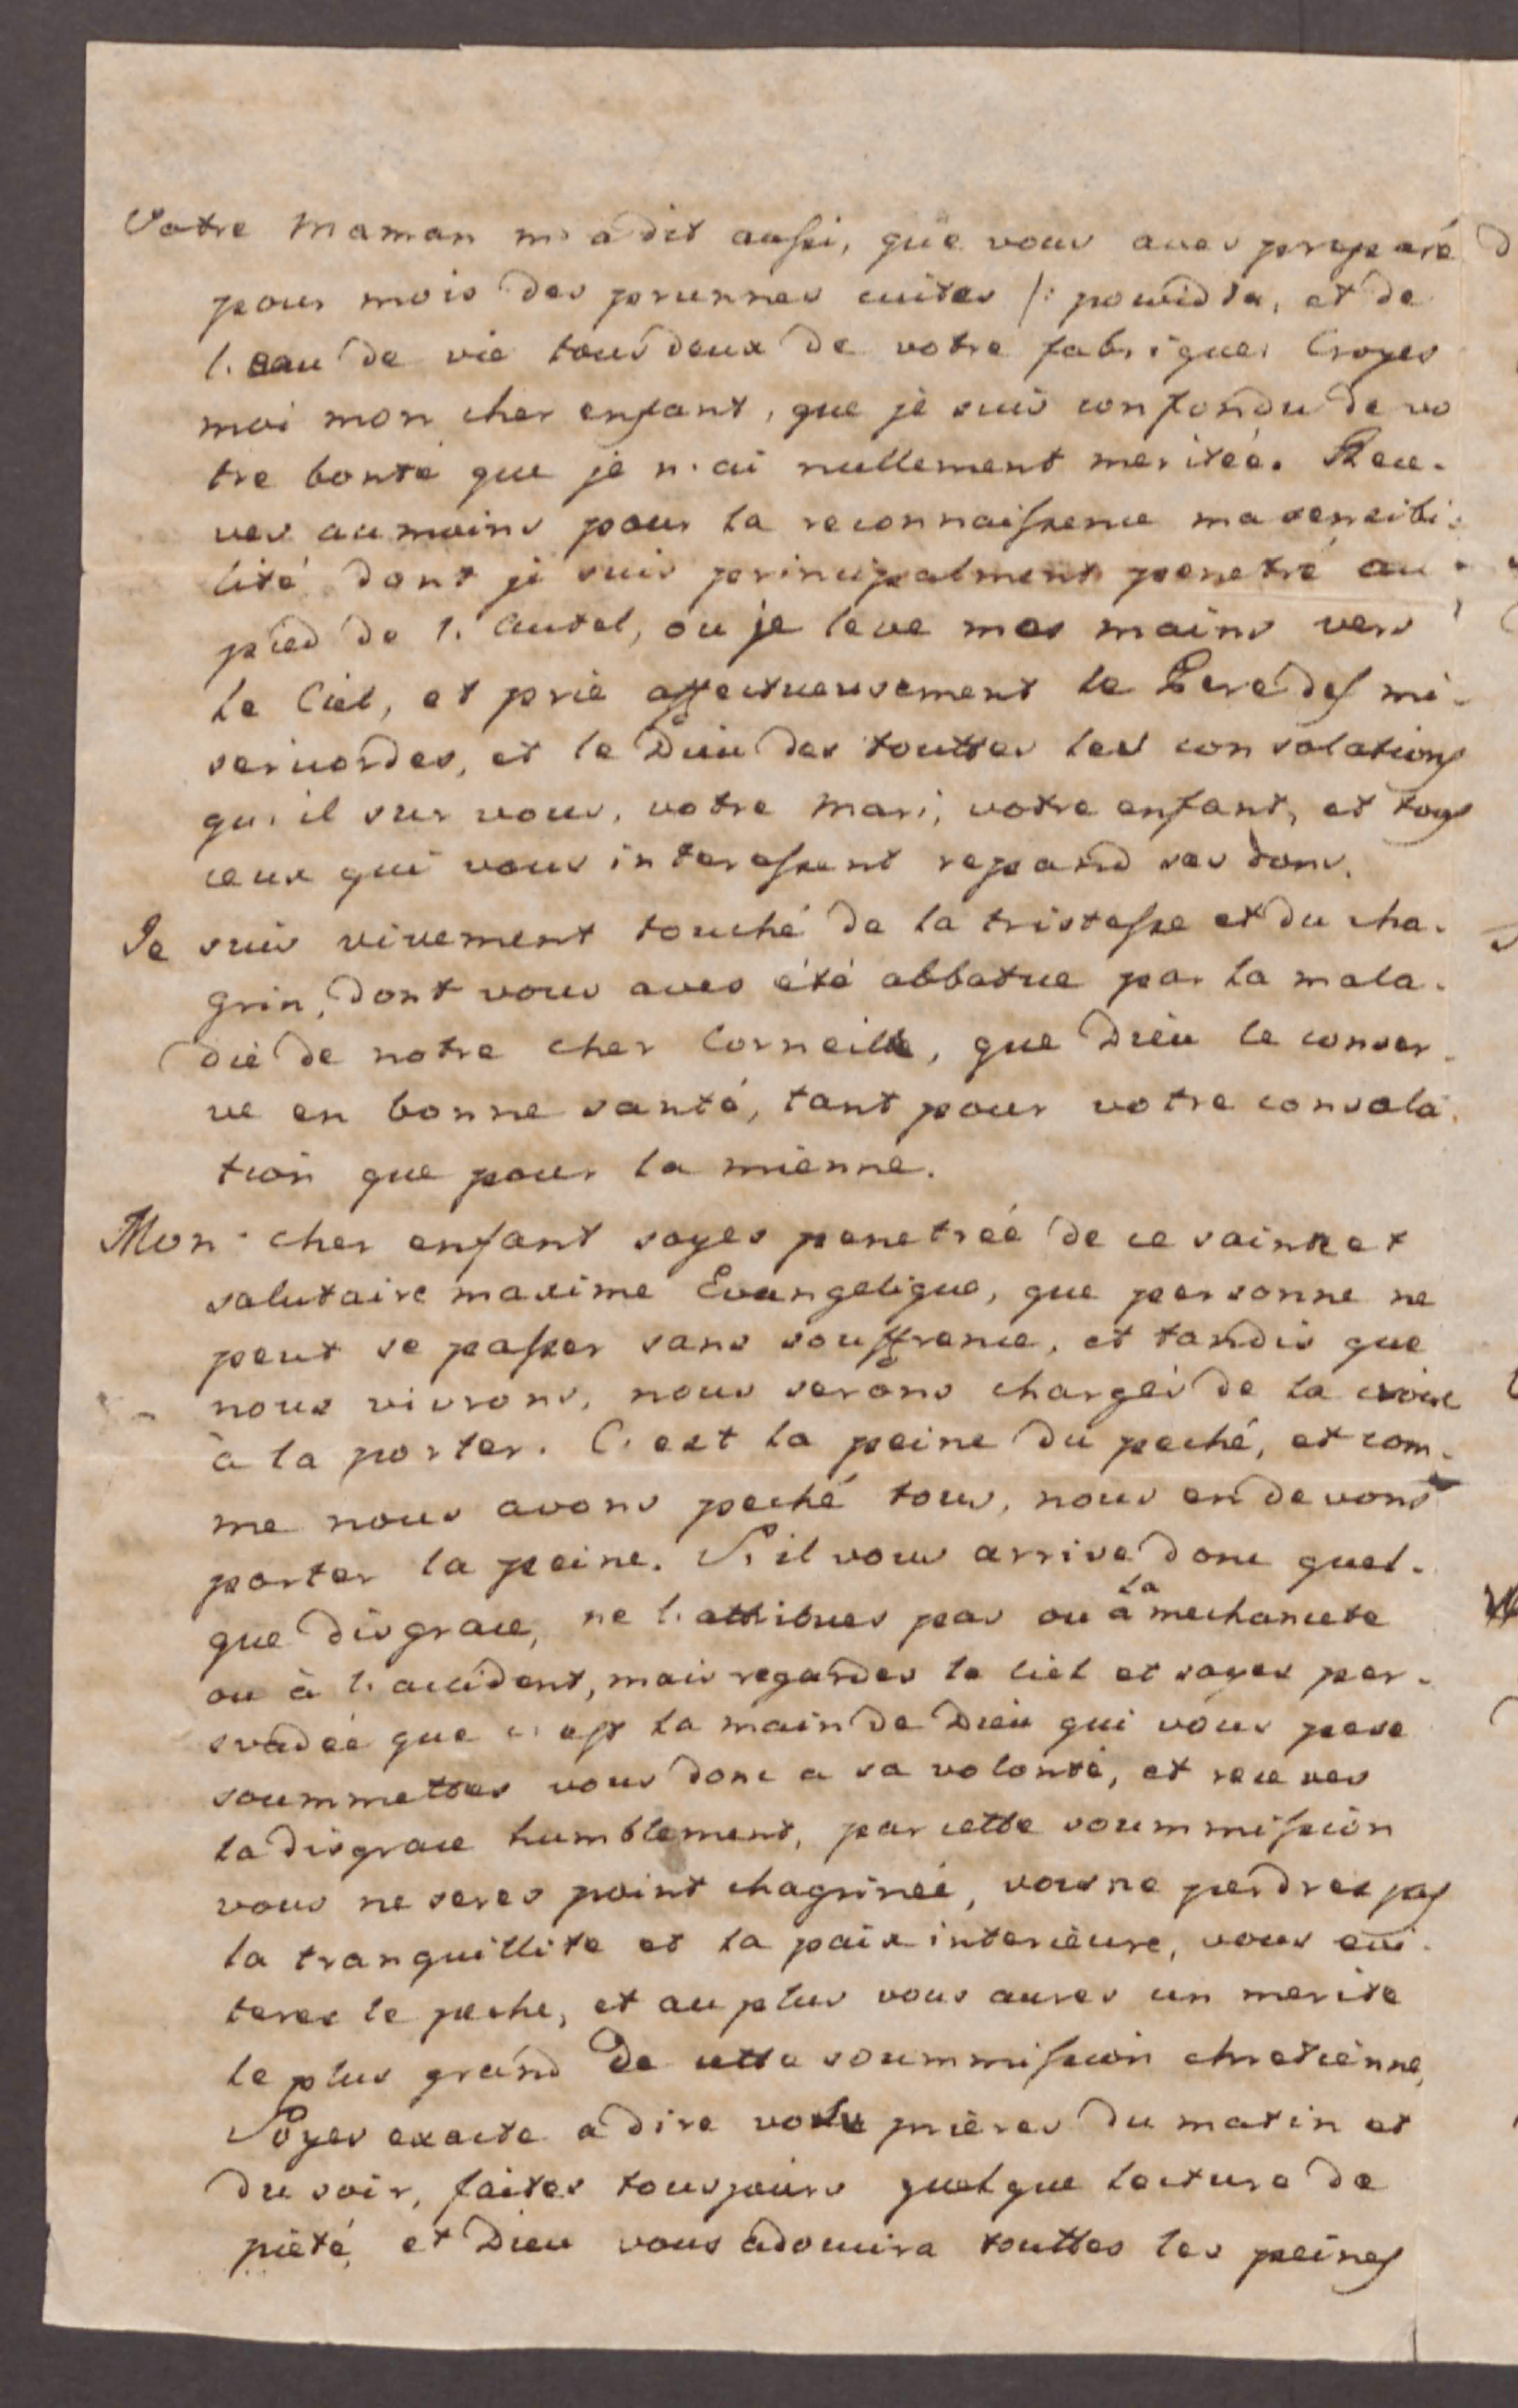 Votre Maman m'a dit aussi, que vous aves preparé
pour mois des prunnes cuites /: powidla, et de
l'eau de vie tous deux de votre fabrique. Croyes
moi mon cher enfant, que je suis confondu de vo
tre bonté que je n'ai nullement meritée. Rece-
ves au moins pour la reconnaissence ma sensibi-
lité dont je suis principalment penetré au
pied de l'Autel, ou je leve mes mains vers
le Ciel, et prie affectueusement le Pere des mi-
sericordes, et le Dieu des touttes les consolations
qu'il sur vous, votre Mari, votre enfant, et tous
ceux qui vous interessent repand ses dons.
Je suis vivement touché de la tristesse et du cha-
grin, dont vous aves été abbatue par la mala-
die de notre cher Corneille, que Dieu le conser-
ve en bonne santé, tant pour votre consola-
tion que pour la mienne.
Mon cher enfant soyes penetrée de ce saint et
salutaire maxime Evangelique, que personne ne
peut se passer sans souffrence, et tandis que
nous vivrons, nous serons chargés de la croix
à la porter. C'est la peine du peché, et com-
me nous avons peché tous, nous en devons
porter la peine. S'il vous arrive donc quel-
que disgrace, ne l'attribues pas ou à la mechancete
ou à l'accident, mais regardes le Ciel et soyes per-
svadée que c'est la main de Dieu qui vous pese
soummettes vous donc a sa volonté, et receves
la disgrace humblement, par cette soummission
vous ne seres point chagrinée, vous ne perdres pas
la tranquillite et la paix interieure, vous evi-
teres le peche, et au plus vous aures un merite
le plus grand de cette soummission chretienne,
Soyes exacte a dire votre prières du matin et
du soir, faites tousjours quelque lecture de
pieté, et Dieu vous adoucira touttes les peines